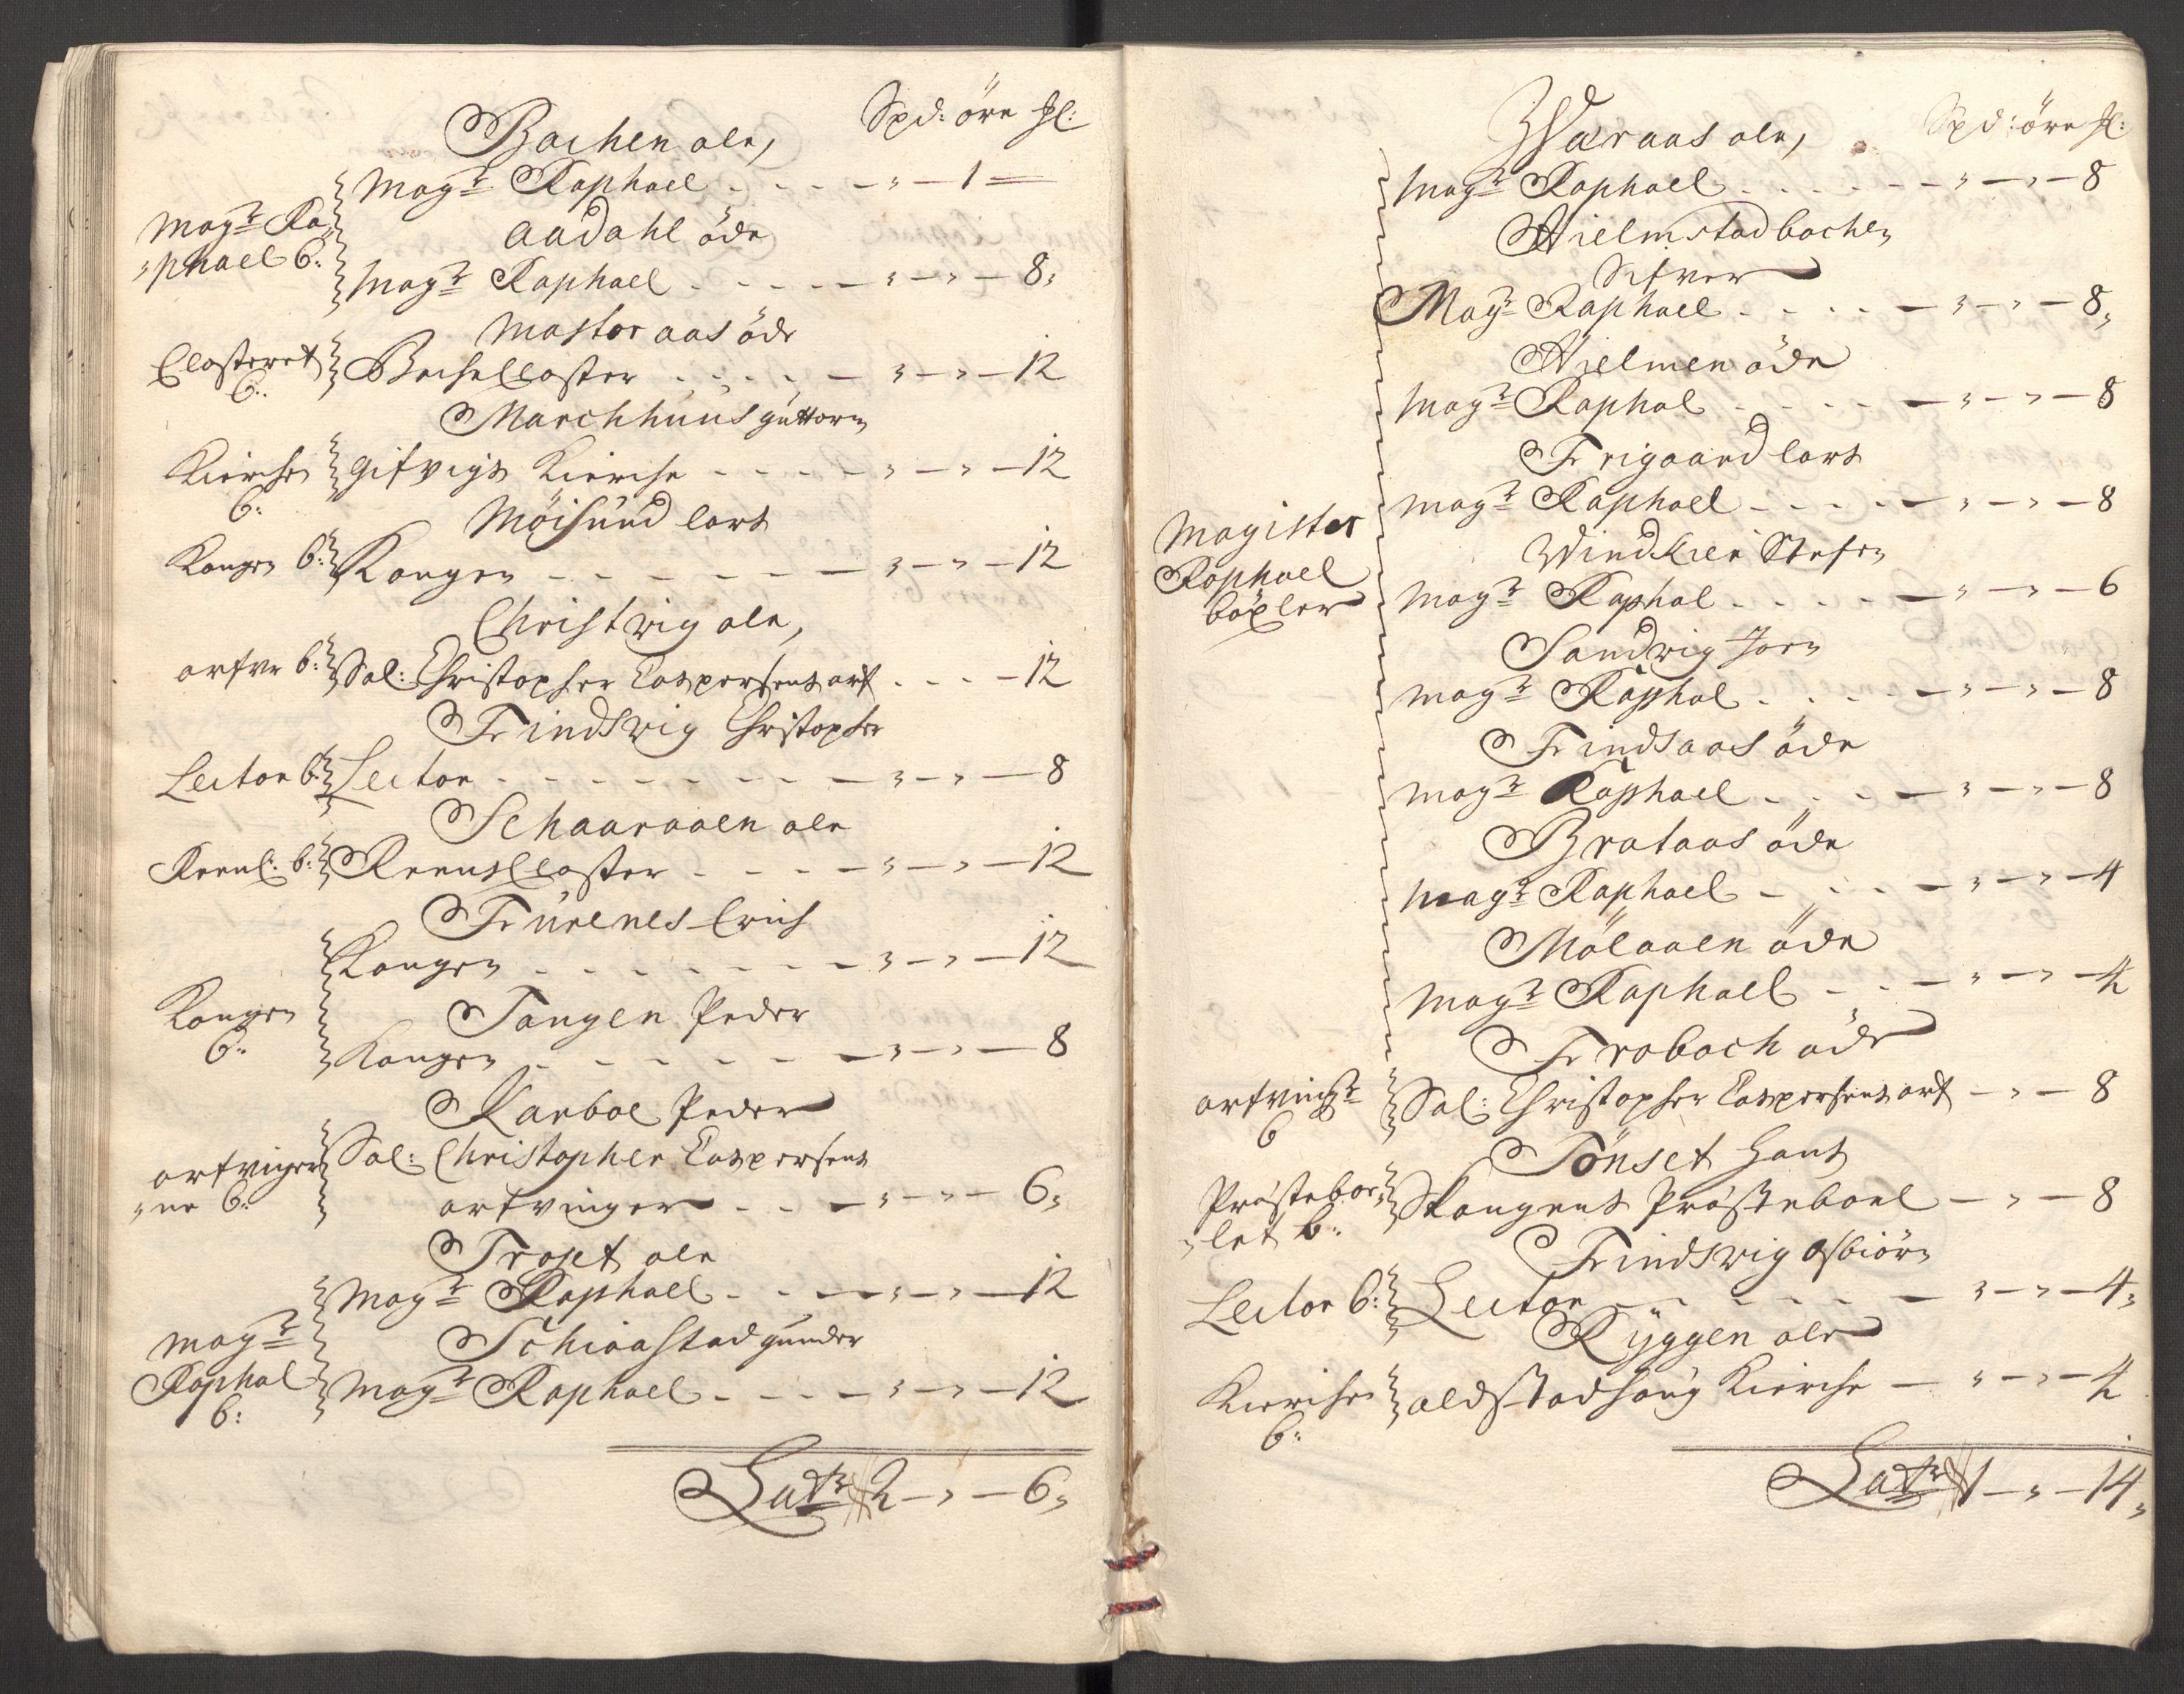 Spd: öre sl:
Bachen ole,
Magr Raphael - - - - " - 1 =
Magr Ra-
"phael b:
Aadahl öde
Magr Raphael - - - - " - " - 8"
Mastoraas öde
Closteret
b:
Bacheloster - - - - " - " - 12
Marchhuus guttorm
Kirche
b:
gifvigs Kirche - - - - " - " - 12
Möisund lars
Kongen b: Kongen - - - - " - " - 12
Christvig ole,
arfve b: Sal: Christopher Caspersens arf - - - - 12
Frindsvig Christopher
Lector b: Lector - - - - " - " - 8
Schaaraaen ole
Reensl: b: Reenscloster - - - - " - " - 12
Furenes Erich
Kongen - - - - " - " - 12
Kongen
b:
Tangen Peder
Kongen - - - - " - " - 8
Karboe Peder
Sal: Christopher Caspersens
arfvinger
"ne b:
arfvinger - - - " - " - 6"
Troset ole
Magr Raphael - - - " - " - 12
Magr
Raphal
b:
Schiaastad gunder
Magr Raphael - - - - " - " - 12
Latr 2 - " - 6"
Spd: öre sl:
Waraas ole,
Magr Raphael - - - - " - " - 8
Hielmstadbachen
Sifver
Magr Raphael - - - - " - " - 8"
Hielmen öde
Magr Raphal - - - - " - " - 8
Frigaard lars
Magr Raphael - - - - " - " - 8
Magister
Raphael
böxler
Windkier Stefen
Magr Raphal - - - - " - " - 6
Sandvig Joen
Magr Raphal - - - - " - " - 8
Frindsaas öde
Magr Raphael - - - - " - " - 8
Brataas öde
Magr Raphael - - - - " - " - 4
Mölaaen öde
Magr Raphael - - - " - " - 4
Frabach öde
arfvingr
b
Sal: Christopher Caspersens arf - " - 8
Tönset Hans
Præstebor-
"let b:
Stangens Præsteboel - " - 8
Frindsvig Asbiörn
Lector b: Lector - - - - " - " - 4"
Ryggen ole
Kirche
b:
aldstadhoug Kirche - " - " - 4
Latr 1 - " - 14"